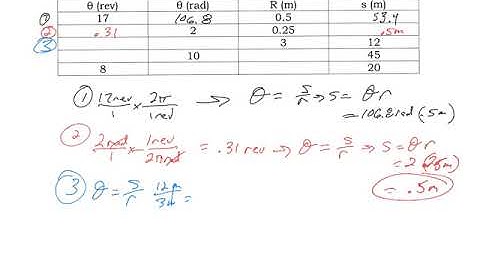 θ (rev) θ (rad) R (m) s (m)
① 17 106.8 0.5 53.4
② .31 2 0.25 .5m
③ 3 12
10 45
8 20
① 17rev/1 × 2π/1rev → θ = s/r → s = θr
= 106.81rad (.5m)
② 2rad/1 × 1rev/2πrad = .31 rev → θ = s/r → s = θr
= 2 (.25m)
= .5m
③ θ = s/r 12m/3m =